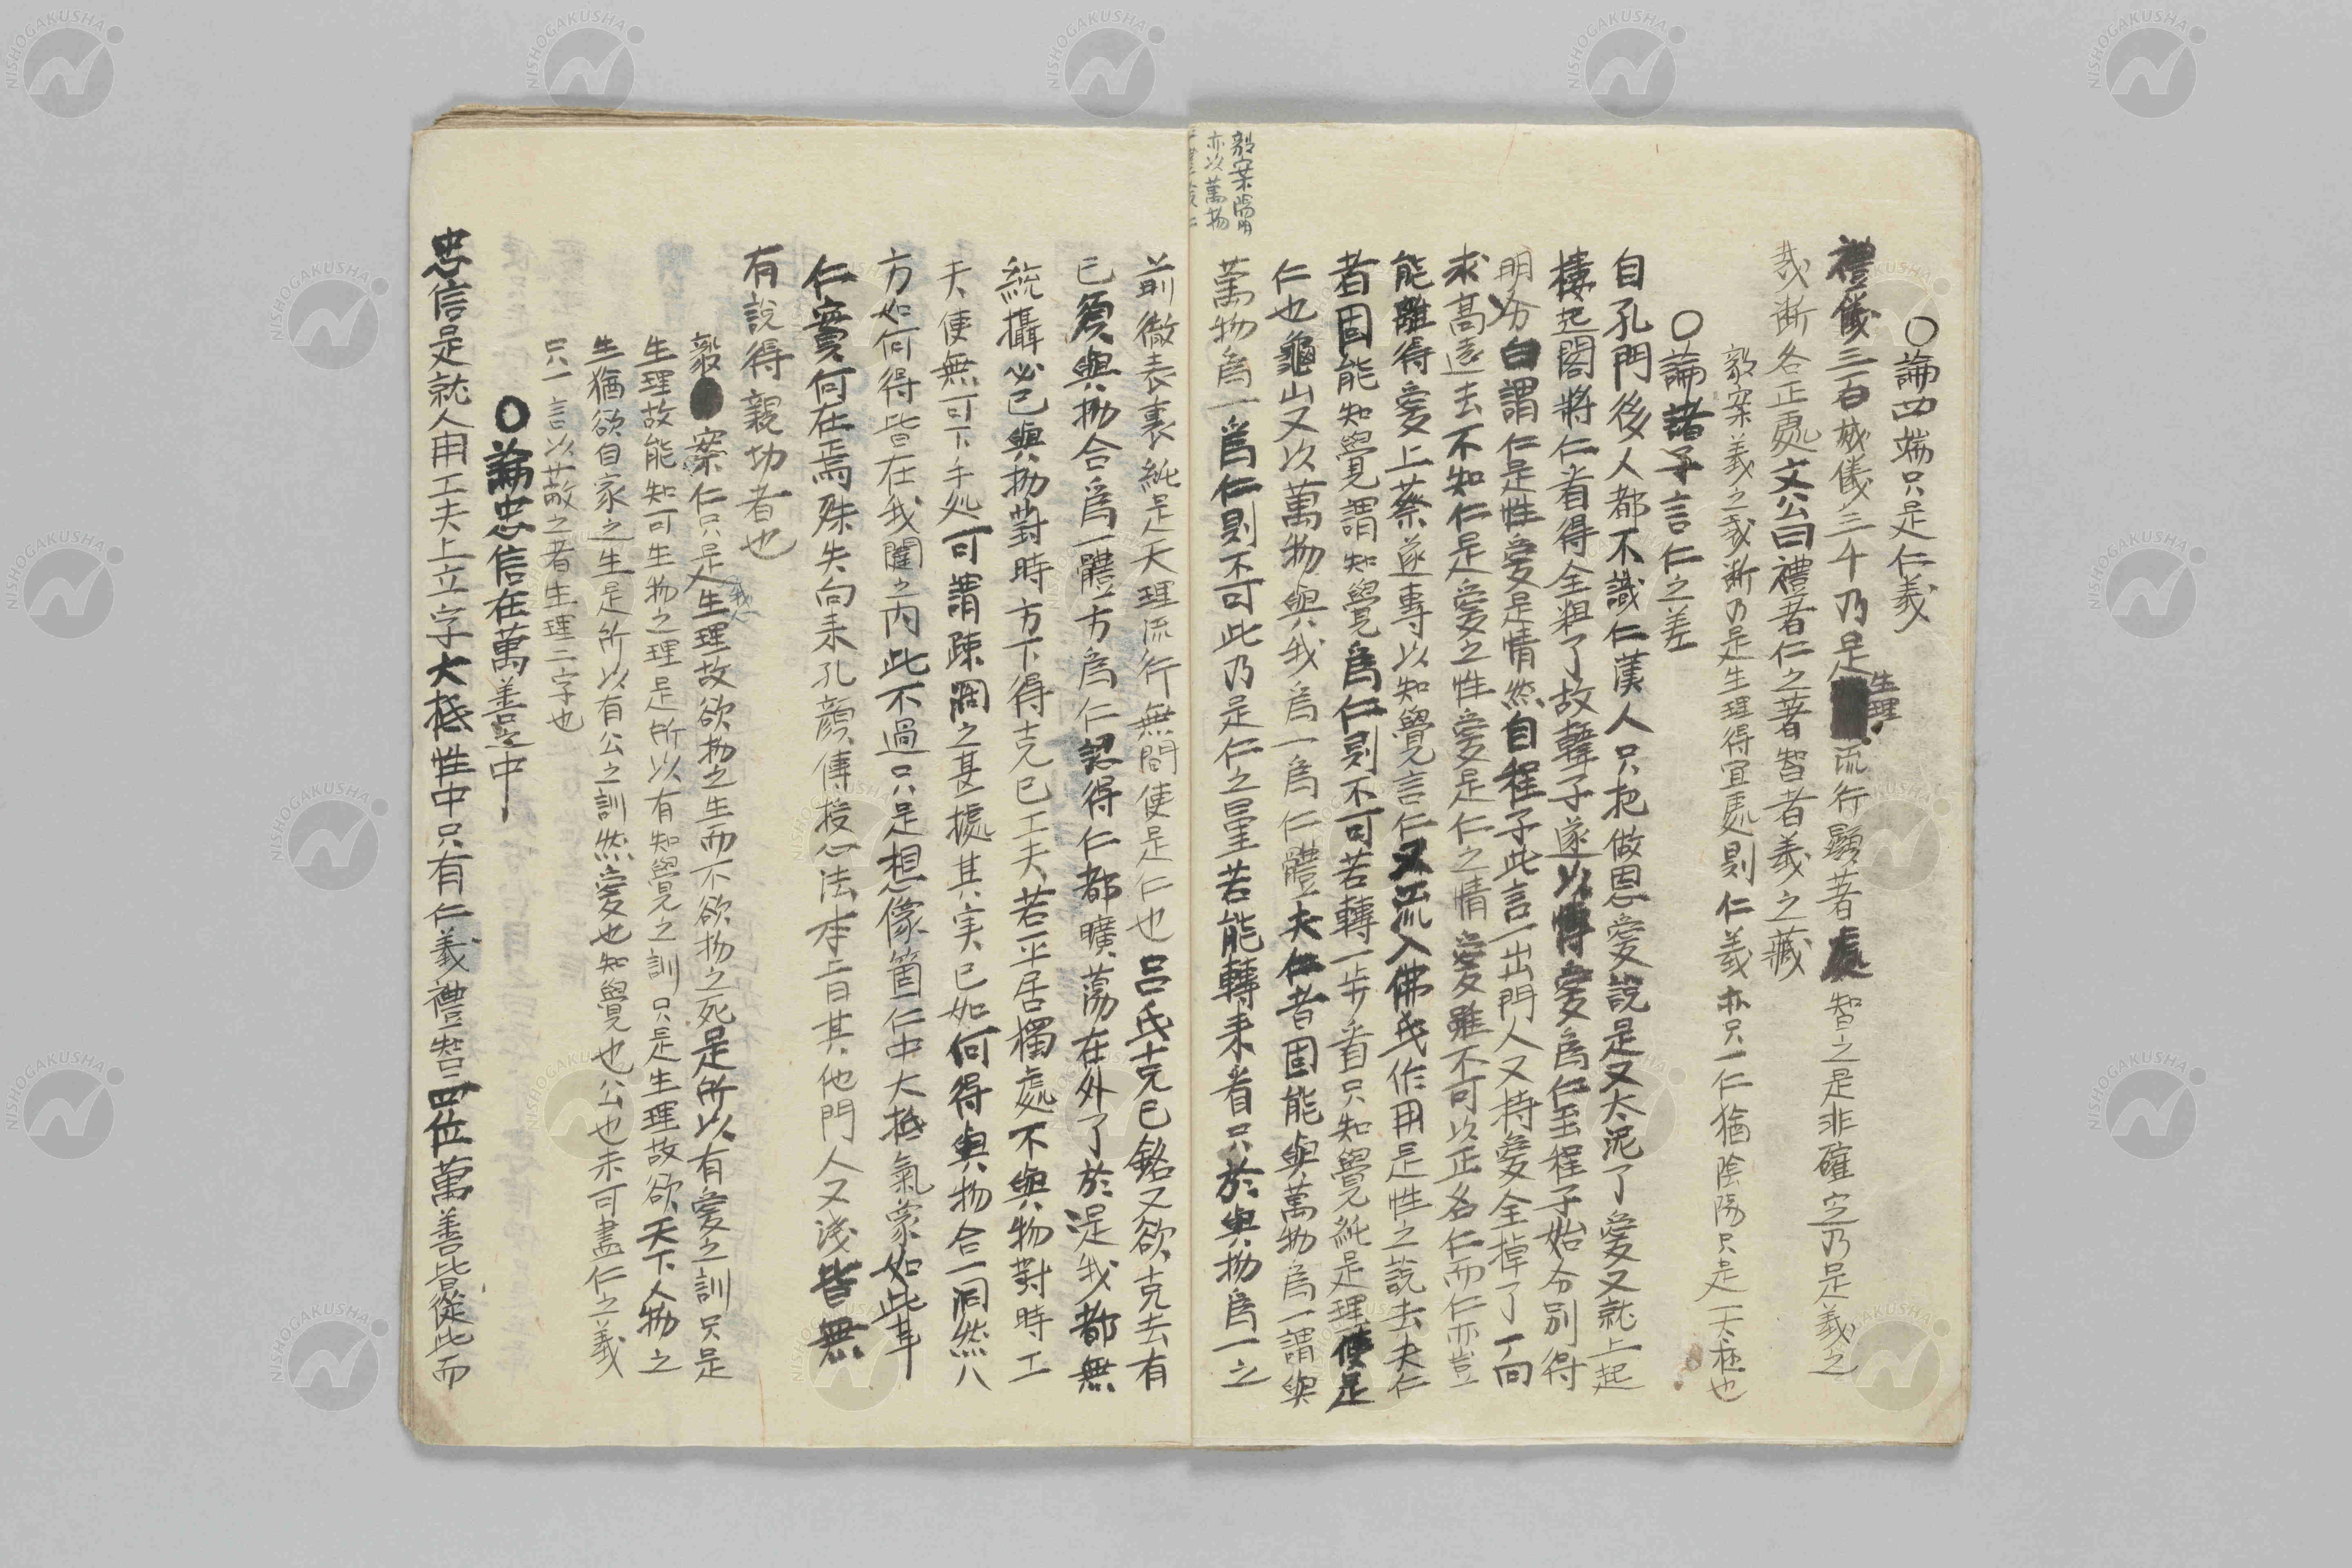 〇論四端只是仁義
禮儀三百威儀三千乃是
生理
流行顯著處智之是非確定乃是義之
裁断各正處文公曰禮者仁之著智者義之藏
毅案義之裁断乃是生理得宜處則仁義亦只一仁猶陰陽只是一天極也
〇論諸子言仁之差
自孔門後人都不識仁漢人只把做恩愛說是又太泥了愛又就上起
樓起閣將仁者得全粗了故韓子遂以博愛為仁至程子始分別得
明分白謂仁是性愛是情然自程子此言一出門人又持愛全掉了一向
求高遠去不知仁是愛之性愛是仁之情愛雖不可以正名仁而仁亦豈
能離得愛上蔡遂專以知覺言仁又流入佛氏作用是性之説去夫仁
者固能知覺謂知覺為仁則不可若轉一步看只知覺純是理便是
仁也龜山又以萬物與我為一為仁體夫仁者固能與萬物為一謂與
萬物為一為仁則不可此乃是仁之量若能轉来看只於與物為一之
毅案陽明
亦以萬物
前徹表裏純是天理流行無間便是仁也呂氏克已銘又欲克去有
已須與物合為一體方為仁認得仁都曠蕩在外了於是我都無
統攝必已與物對時方下得克已工夫若平居獨處不與物對時工
夫便無可下手処可謂疎闊之甚據其実已如何得與物合一洞然八
方如何得皆在我闥之内此不過只是想像箇仁中大極氣象如此耳
仁實何在焉殊失向来孔顔傳授心法本㫖其他門人又淺皆無
有說得親切者也
毅案仁只是人生理故欲物之生而不欲物之死是所以有愛之訓只是
生理故能知可生物之理是所以有知覺之訓只是生理故欲天下人物之
生猶欲自家之生是所以有公之訓然愛也知覺也公也未可盡仁之義
只一言以蔽之者生理二字也
〇論忠信在萬善之中
忠信是就人用工夫上立字大極性中只有仁義禮智四位萬善皆從此而